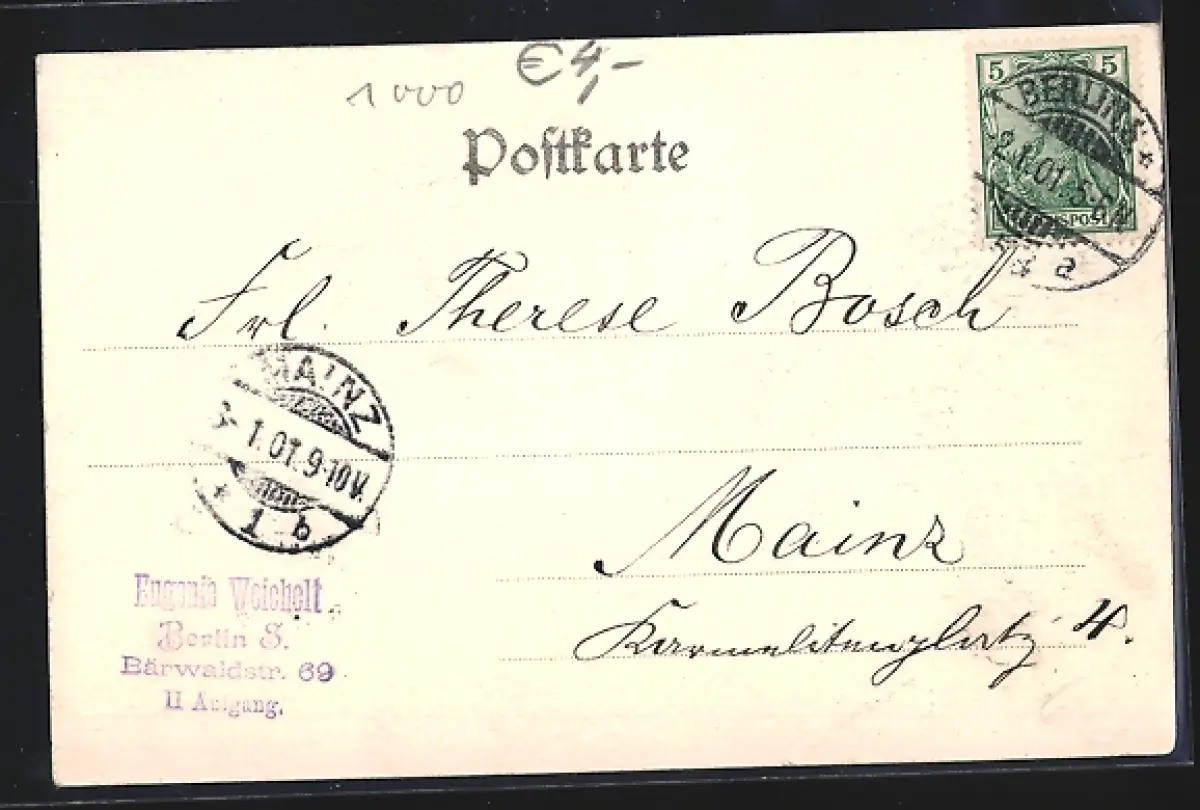 €4,-
1000
Postkarte
5 5
BERLIN S
2.1.01.5-6N
a
Frl. Therese Bosch
MAINZ
1.01.9-10V.
1 b
Mainz
Karmelitenplatz 4.
Eugenie Weichelt
Berlin S.
Bärwaldstr. 69
II Aufgang.